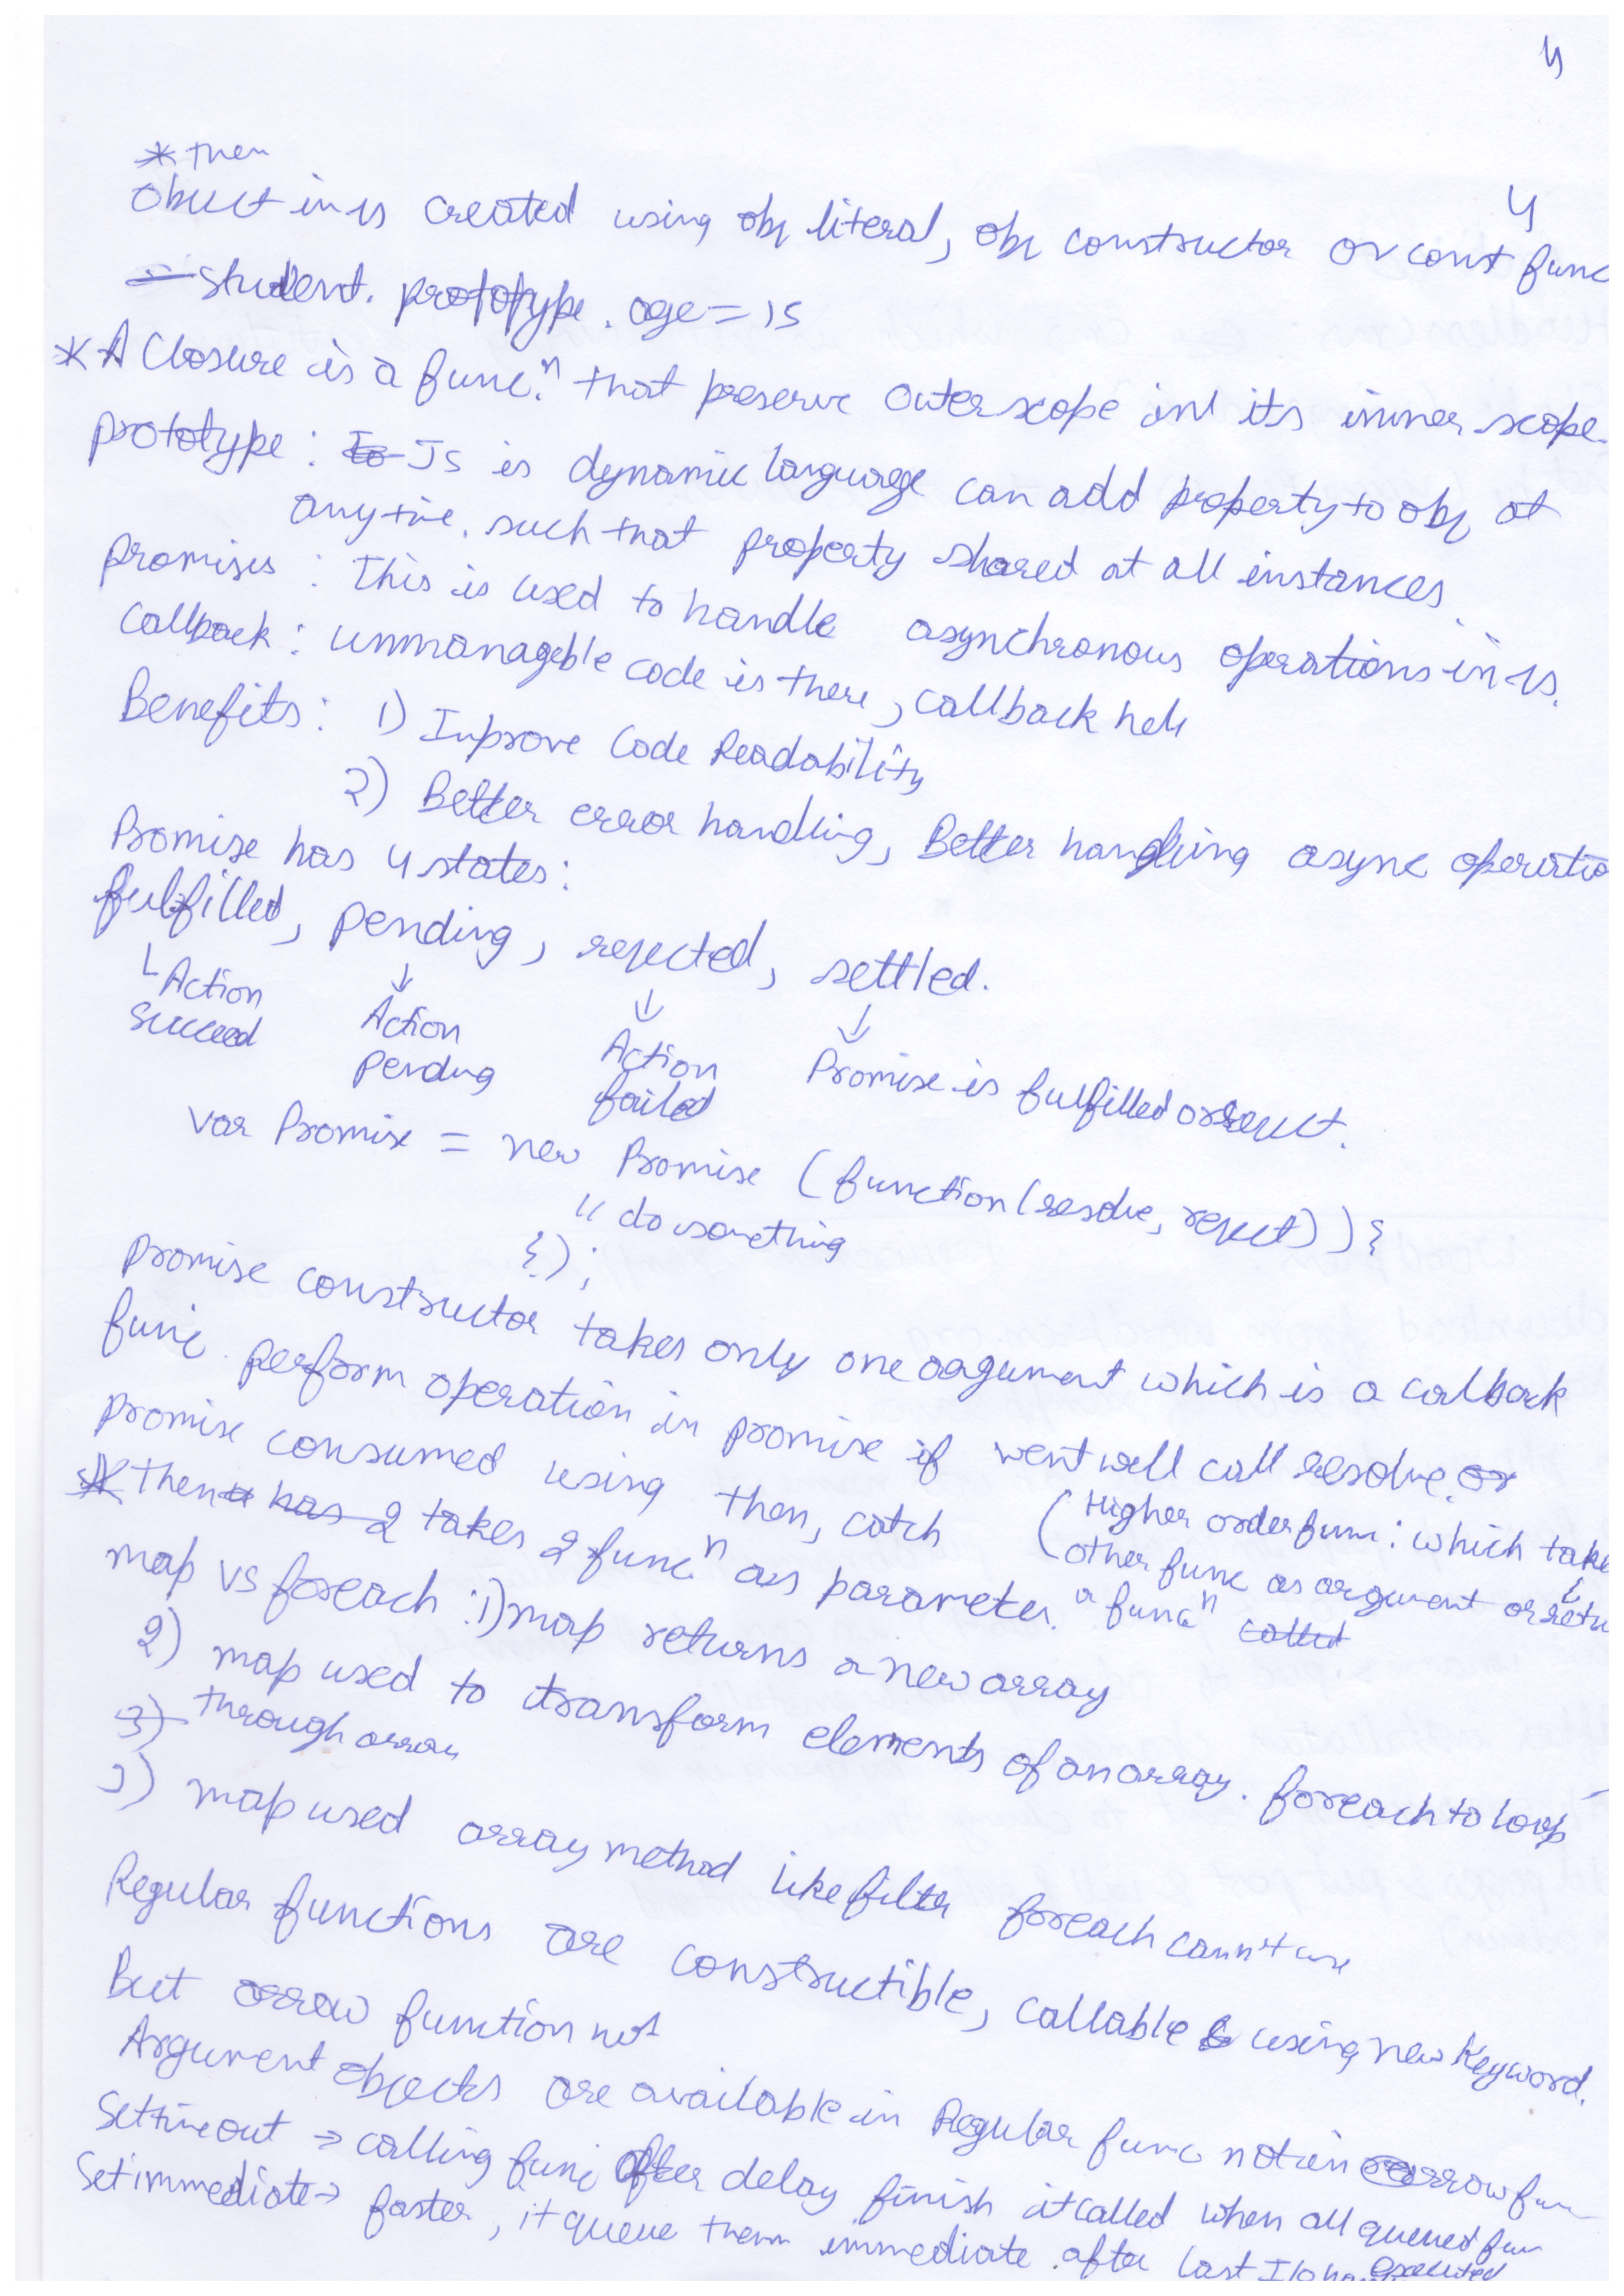 4
* then
Object in Js created using obj literal, obj constructor or const func
student. prototype. age = 15
* A Closure is a funcⁿ that preserve outer scope in its inner scope.
prototype : Js is dynamic language can add property to obj at
any time. such that property shared at all instances.
promises : This is used to handle asynchronous operations in Js.
Callback : unmanageble code is there, callback hell
Benefits : 1) Improve Code Readability
2) Better error handling, Better handling async operatio
Promise has 4 states:
fulfilled, pending, rejected, settled.
Action succeed ↓ Action pending ↓ Action failed ↓ Promise is fulfilled or reject.
var Promise = new Promise (function (resolve, reject)) {
// do something
});
Promise constructor takes only one argument which is a callback
func perform operation in promise if went well call resolve.
promise consumed using then, catch
(Higher order func : which take
other func as argument or retu
a funcⁿ
* then takes 2 funcⁿ as parameter.
map vs foreach : 1) map returns a new array
2) map used to transform elements of an array. foreach to loop
through array
3) map used array method like filter foreach cann't use
Regular functions are constructible, callable using new keyword.
But arrow function not
Argument objects are available in Regular func not in arrow fun
Settimeout → calling func after delay finish it called when all queued fun
executed
Setimmediate → faster, it queue them immediate. after last I/O